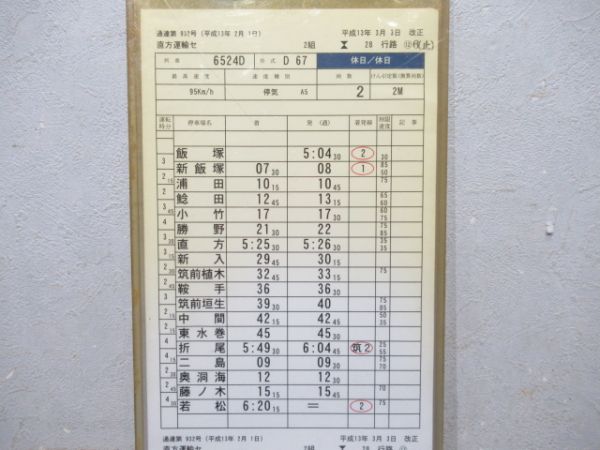 通達第 932号 (平成13年 2月 1日) 平成13年 3月 3日 改正
直方運輸セ 2組 28 行路
列車 6524D 形式 D 67 休日/休日
最高速度 速度種別 両数 けん引定数(換算両数)
95Km/h 停気 A5 2 2M
運転時分 停車場名 着 発(通) 着発線 制限速度 記事
飯塚 5:04 30 2 30
3 新飯塚 07 30 08 1 85 60
2 15 浦田 10 15 10 45 75
2 鯰田 12 45 13 15 65 60
3 45 小竹 17 17 30 60 75
4 勝野 21 30 22 75 85
3 30 直方 5:25 30 5:26 30 35 35
3 15 新入 29 45 30 15
2 15 筑前植木 32 45 33 15 75
2 45 鞍手 36 36 30
3 筑前垣生 39 30 40 75 85
2 15 中間 42 15 42 45 50 35
2 45 東水巻 45 45 30
4 折尾 5:49 30 6:04 45 筑2 25 55
4 15 二島 09 09 30 75 70
2 30 奥洞海 12 12 30
2 45 藤ノ木 15 15 15 45 70
4 30 若松 6:20 15 = 2 75
通達第 932号 (平成13年 2月 1日) 平成13年 3月 3日 改正
直方運輸セ 2組 28 行路